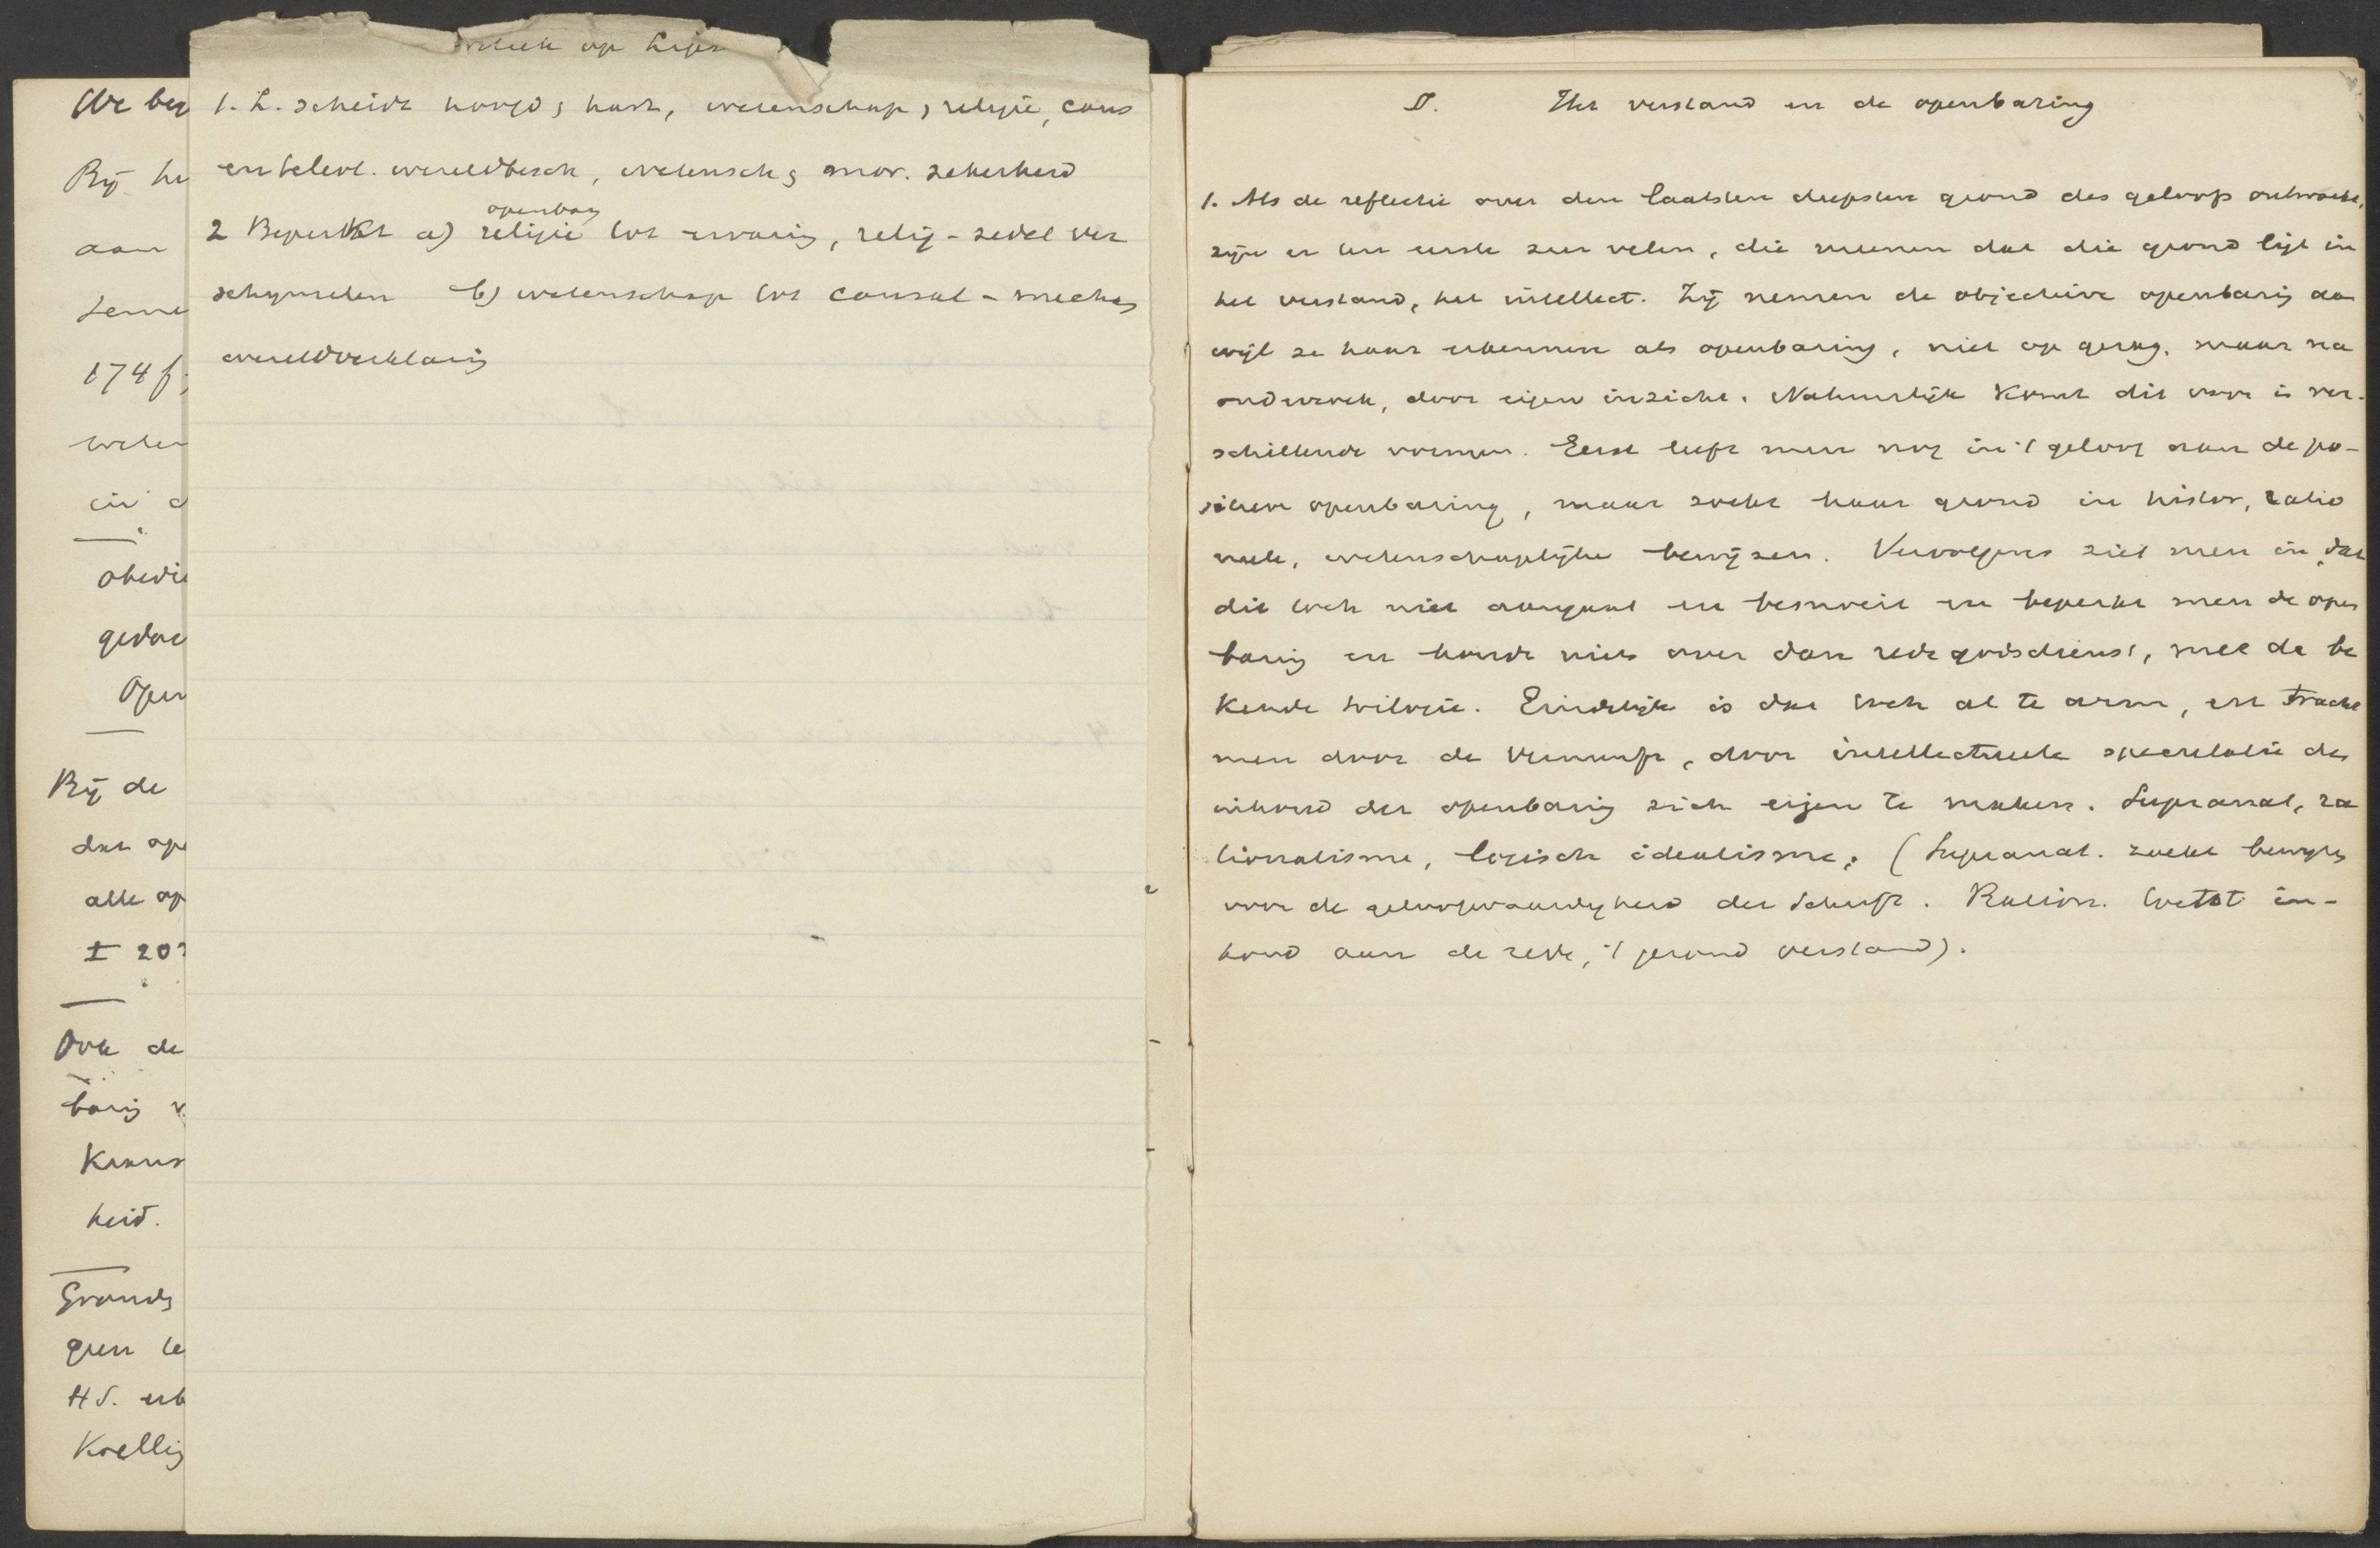 We ben
Bij he
aan
teme
174 f;
weten
in d
obedie
gedac
Open
Bij de
dat ope
alle op
I 20
Ook de
baring v
Kenni
heid.
Grond
gen te
H S. erk
Koelling
kritiek op Lips
1. L. scheidt hoofd & hart, wetenschap & religie, caus
en teleol. wereldbesch, wetensch & mor. zekerheid
openbarg
2 Beperkt a) religie tot ervaring, relig-zedel ver
schijnselen b) wetenschap tot causal-mechan
wereldverklaring
D. Het verstand en de openbaring
1. Als de reflectie over den laatsten diepsten grond des geloofs ontwaakt,
zijn er ten eerste zeer velen, die meenen dat die grond ligt in
het verstand, het intellect. Zij nemen de objectieve openbaring aan
wijl ze haar erkennen als openbaring, niet op gezag, maar na
onderzoek, door eigen inzicht. Natuurlijk komt dit voor in ver-
schillende vormen. Eerst leeft men nog in 't geloof aan de po-
sitieve openbaring, maar zoekt haar grond in histor, ratio
neele, wetenschappelijke bewijzen. Vervolgens ziet men in, dat
dit toch niet aangaat en besnoeit en beperkt men de open
baring en houdt niets over dan redegodsdienst, met de be
kende trilogie. Eindelijk is dat toch al te arm, en tracht
men door de Vernunft, door intellectueele speculatie den
inhoud der openbaring zich eigen te maken. Supranat, ra
tionalisme, logisch idealisme. (Supranat. zoekt bewijs
voor de geloofwaardigheid der Schrift. Ration. toetst in-
houd aan de rede, 't gezond verstand).